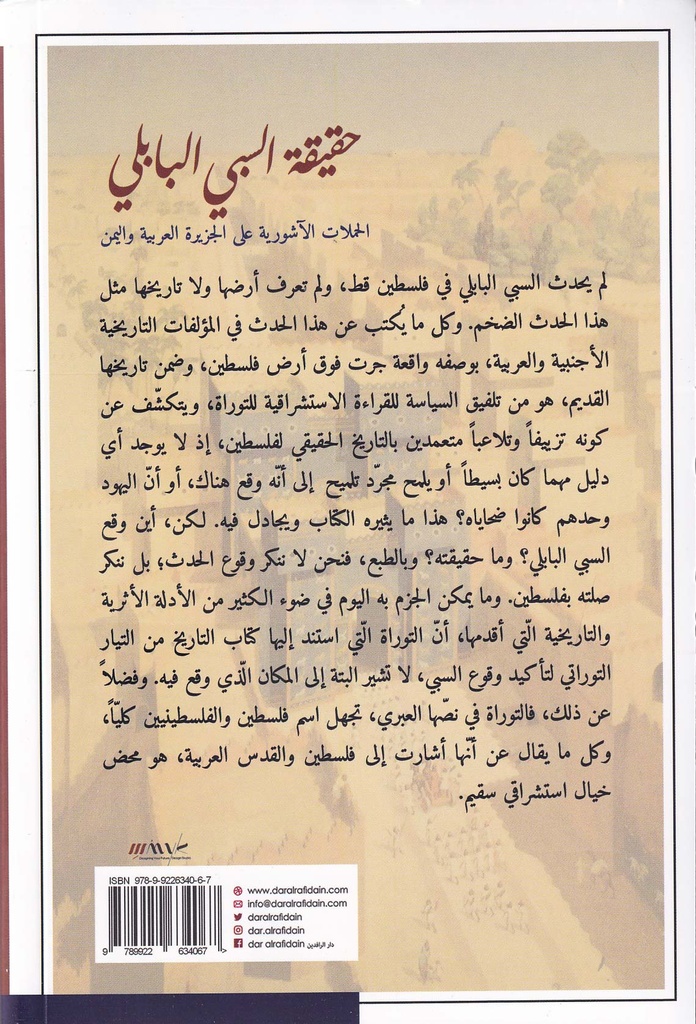 حقيقة السبي البابلي
الحملات الآشورية على الجزيرة العربية واليمن
لم يحدث السبي البابلي في فلسطين قط، ولم تعرف أرضها ولا تاريخها مثل
هذا الحدث الضخم. وكل ما يُكتب عن هذا الحدث في المؤلفات التاريخية
الأجنبية والعربية، بوصفه واقعة جرت فوق أرض فلسطين، وضمن تاريخها
القديم، هو من تلفيق السياسة للقراءة الاستشراقية للتوراة، ويتكشّف عن
كونه تزييفاً وتلاعباً متعمدين بالتاريخ الحقيقي لفلسطين، إذ لا يوجد أي
دليل مهما كان بسيطاً أو يلمح مجرّد تلميح إلى أنّه وقع هناك، أو أنّ اليهود
وحدهم كانوا ضحاياه؟ هذا ما يثيره الكتاب ويجادل فيه. لكن، أين وقع
السبي البابلي؟ وما حقيقته؟ وبالطبع، فنحن لا ننكر وقوع الحدث؛ بل ننكر
صلته بفلسطين. وما يمكن الجزم به اليوم في ضوء الكثير من الأدلة الأثرية
والتاريخية الّتي أقدمها، أنّ التوراة الّتي استند إليها كتاب التاريخ من التيار
التوراتي لتأكيد وقوع السبي، لا تشير البتة إلى المكان الّذي وقع فيه. وفضلاً
عن ذلك، فالتوراة في نصّها العبري، تجهل اسم فلسطين والفلسطينيين كليّاً،
وكل ما يقال عن أنّها أشارت إلى فلسطين والقدس العربية، هو محض
خيال استشراقي سقيم.
ISBN 978-9-9226340-6-7
9 789922 634067 >
www.daralrafidain.com
info@daralrafidain.com
daralrafidain
dar.alrafidain
dar alrafidain دار الرافدين